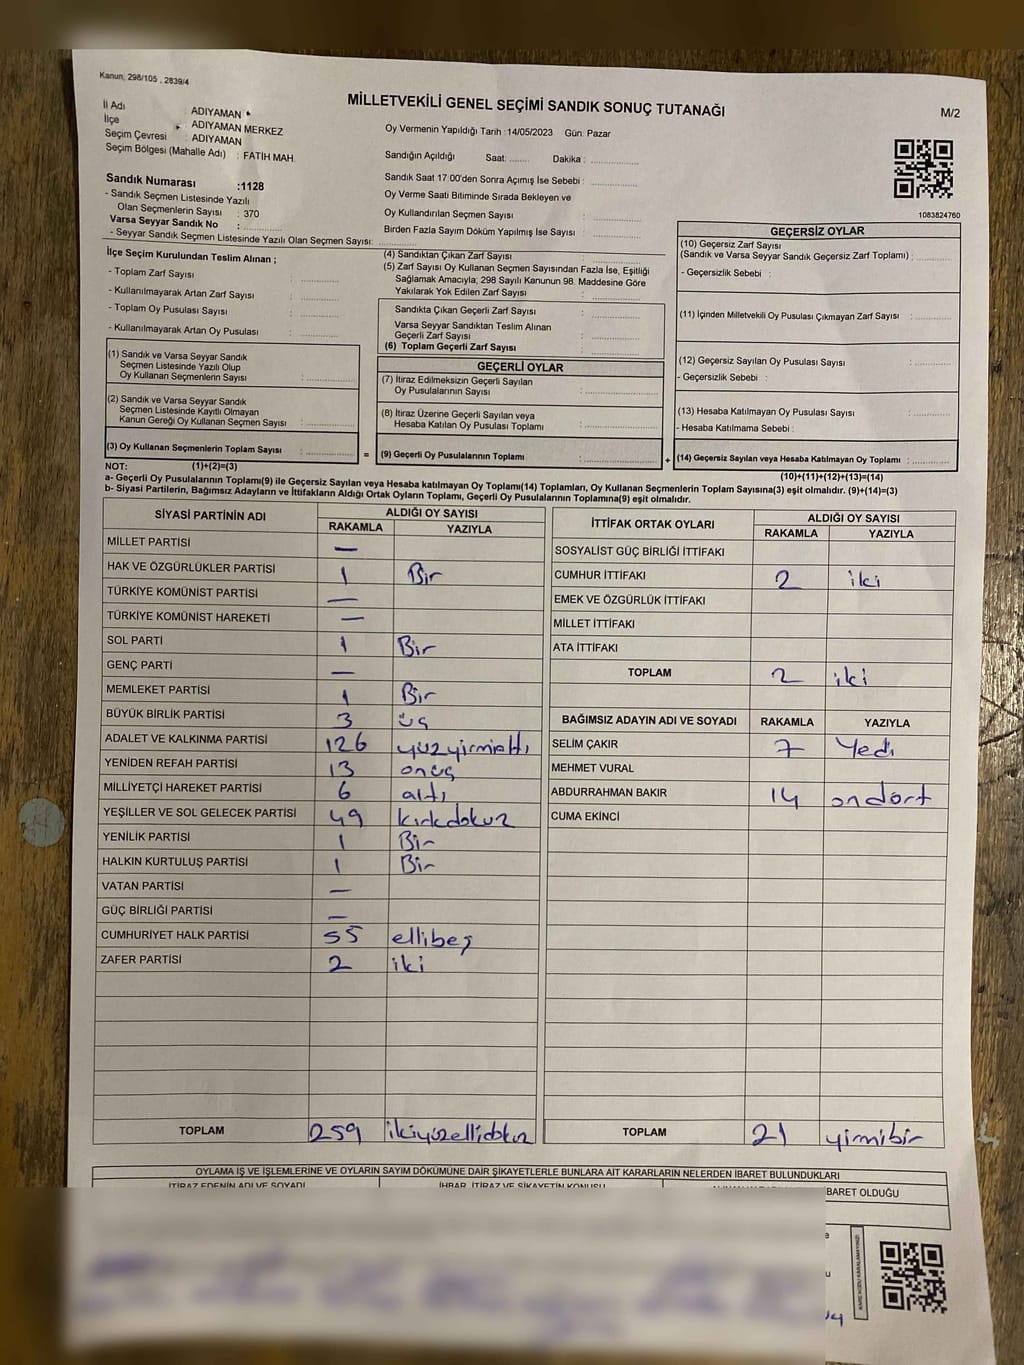 Kanun, 298/105 , 2839/4
MİLLETVEKİLİ GENEL SEÇİMİ SANDIK SONUÇ TUTANAĞI
M/2
İl Adı : ADIYAMAN
İlçe : ADIYAMAN MERKEZ
Seçim Çevresi : ADIYAMAN
Seçim Bölgesi (Mahalle Adı) : FATİH MAH.
Oy Vermenin Yapıldığı Tarih : 14/05/2023 Gün: Pazar
Sandığın Açıldığı Saat: ....... Dakika : ...................
Sandık Saat 17:00'den Sonra Açımış İse Sebebi : ...................
Oy Verme Saati Bitiminde Sırada Bekleyen ve
Oy Kullandırılan Seçmen Sayısı : ...................
Birden Fazla Sayım Döküm Yapılmış İse Sayısı : ...................
1083824760
Sandık Numarası :1128
- Sandık Seçmen Listesinde Yazılı
Olan Seçmenlerin Sayısı : 370
Varsa Seyyar Sandık No : ...................
- Seyyar Sandık Seçmen Listesinde Yazılı Olan Seçmen Sayısı: ...........
İlçe Seçim Kurulundan Teslim Alınan ;
- Toplam Zarf Sayısı : ...........
- Kullanılmayarak Artan Zarf Sayısı : ...........
- Toplam Oy Pusulası Sayısı : ...........
- Kullanılmayarak Artan Oy Pusulası : ...........
(1) Sandık ve Varsa Seyyar Sandık
Seçmen Listesinde Yazılı Olup
Oy Kullanan Seçmenlerin Sayısı : ...........
(2) Sandık ve Varsa Seyyar Sandık
Seçmen Listesinde Kayıtlı Olmayan
Kanun Gereği Oy Kullanan Seçmen Sayısı : ...........
(3) Oy Kullanan Seçmenlerin Toplam Sayısı : ........... =
(4) Sandıktan Çıkan Zarf Sayısı : ...........
(5) Zarf Sayısı Oy Kullanan Seçmen Sayısından Fazla İse, Eşitliği
Sağlamak Amacıyla; 298 Sayılı Kanunun 98. Maddesine Göre
Yakılarak Yok Edilen Zarf Sayısı : ...........
Sandıkta Çıkan Geçerli Zarf Sayısı : ...........
Varsa Seyyar Sandıktan Teslim Alınan
Geçerli Zarf Sayısı : ...........
(6) Toplam Geçerli Zarf Sayısı : ...........
GEÇERLİ OYLAR
(7) İtiraz Edilmeksizin Geçerli Sayılan
Oy Pusulalarının Sayısı : ...........
(8) İtiraz Üzerine Geçerli Sayılan veya
Hesaba Katılan Oy Pusulası Toplamı : ...........
(9) Geçerli Oy Pusulalarının Toplamı : ........... +
GEÇERSİZ OYLAR
(10) Geçersiz Zarf Sayısı
(Sandık ve Varsa Seyyar Sandık Geçersiz Zarf Toplamı) : ...........
- Geçersizlik Sebebi :
(11) İçinden Milletvekili Oy Pusulası Çıkmayan Zarf Sayısı : ...........
(12) Geçersiz Sayılan Oy Pusulası Sayısı : ...........
- Geçersizlik Sebebi :
(13) Hesaba Katılmayan Oy Pusulası Sayısı : ...........
- Hesaba Katılmama Sebebi :
(14) Geçersiz Sayılan veya Hesaba Katılmayan Oy Toplamı : ...........
NOT: (1)+(2)=(3) (10)+(11)+(12)+(13)=(14)
a- Geçerli Oy Pusulalarının Toplamı(9) ile Geçersiz Sayılan veya Hesaba katılmayan Oy Toplamı(14) Toplamları, Oy Kullanan Seçmenlerin Toplam Sayısına(3) eşit olmalıdır. (9)+(14)=(3)
b- Siyasi Partilerin, Bağımsız Adayların ve İttifakların Aldığı Ortak Oyların Toplamı, Geçerli Oy Pusulalarının Toplamına(9) eşit olmalıdır.
SİYASİ PARTİNİN ADI ALDIĞI OY SAYISI
RAKAMLA YAZIYLA
MİLLET PARTİSİ —
HAK VE ÖZGÜRLÜKLER PARTİSİ 1 Bir
TÜRKİYE KOMÜNİST PARTİSİ —
TÜRKİYE KOMÜNİST HAREKETİ —
SOL PARTİ 1 Bir
GENÇ PARTİ —
MEMLEKET PARTİSİ 1 Bir
BÜYÜK BİRLİK PARTİSİ 3 üç
ADALET VE KALKINMA PARTİSİ 126 yüzyirmialtı
YENİDEN REFAH PARTİSİ 13 onüç
MİLLİYETÇİ HAREKET PARTİSİ 6 altı
YEŞİLLER VE SOL GELECEK PARTİSİ 49 kırkdokuz
YENİLİK PARTİSİ 1 Bir
HALKIN KURTULUŞ PARTİSİ 1 Bir
VATAN PARTİSİ —
GÜÇ BİRLİĞİ PARTİSİ —
CUMHURİYET HALK PARTİSİ 55 ellibeş
ZAFER PARTİSİ 2 iki
TOPLAM 259 ikiyüzellidokuz
İTTİFAK ORTAK OYLARI ALDIĞI OY SAYISI
RAKAMLA YAZIYLA
SOSYALİST GÜÇ BİRLİĞİ İTTİFAKI
CUMHUR İTTİFAKI 2 iki
EMEK VE ÖZGÜRLÜK İTTİFAKI
MİLLET İTTİFAKI
ATA İTTİFAKI
TOPLAM 2 iki
BAĞIMSIZ ADAYIN ADI VE SOYADI RAKAMLA YAZIYLA
SELİM ÇAKIR 7 Yedi
MEHMET VURAL
ABDURRAHMAN BAKIR 14 ondört
CUMA EKİNCİ
TOPLAM 21 yirmibir
OYLAMA İŞ VE İŞLEMLERİNE VE OYLARIN SAYIM DÖKÜMÜNE DAİR ŞİKAYETLERLE BUNLARA AİT KARARLARIN NELERDEN İBARET BULUNDUKLARI
İTİRAZ EDENİN ADI VE SOYADI İHBAR, İTİRAZ VE ŞİKAYETİN KONUSU BARET OLDUĞU